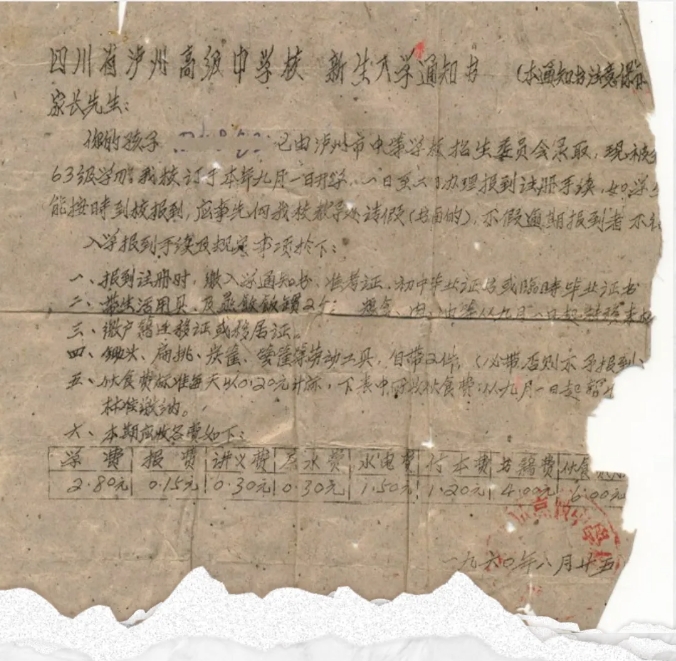 四川省泸州高级中学校 新生入学通知书 (本通知书注意保
家长先生:
你的孩子 已由泸州市中等学校招生委员会录取,现被
63级学 我校订于本年九月一日开学,一日至 日办理报到注册手续,如学生
能按时到校报到,应事先向我校教导处请假(书面的),不假逾期报到者不
入学报到手续及规定事项於下:
一、报到注册时,缴入学通知书、准考证、初中毕业证书或临時毕业证书
二、带生活用具,及蒸饭饭罐2个;
三、缴户籍迁移证或移居证。
四、锄头、扁挑、 等劳动工具,自带2件,(必带否则不予报到)
五、伙食费标准每天以0.20元计算,下 伙食费,从九月一日起
标准缴纳。
六、本期应收各费如下:
学费 报费 讲义费 茶水费 水电费 付本费 书籍费 伙食
2.80元 0.15元 0.30元 0.30元 1.50元 1.20元 4.00元 6.00元
一九六〇年八月廿五